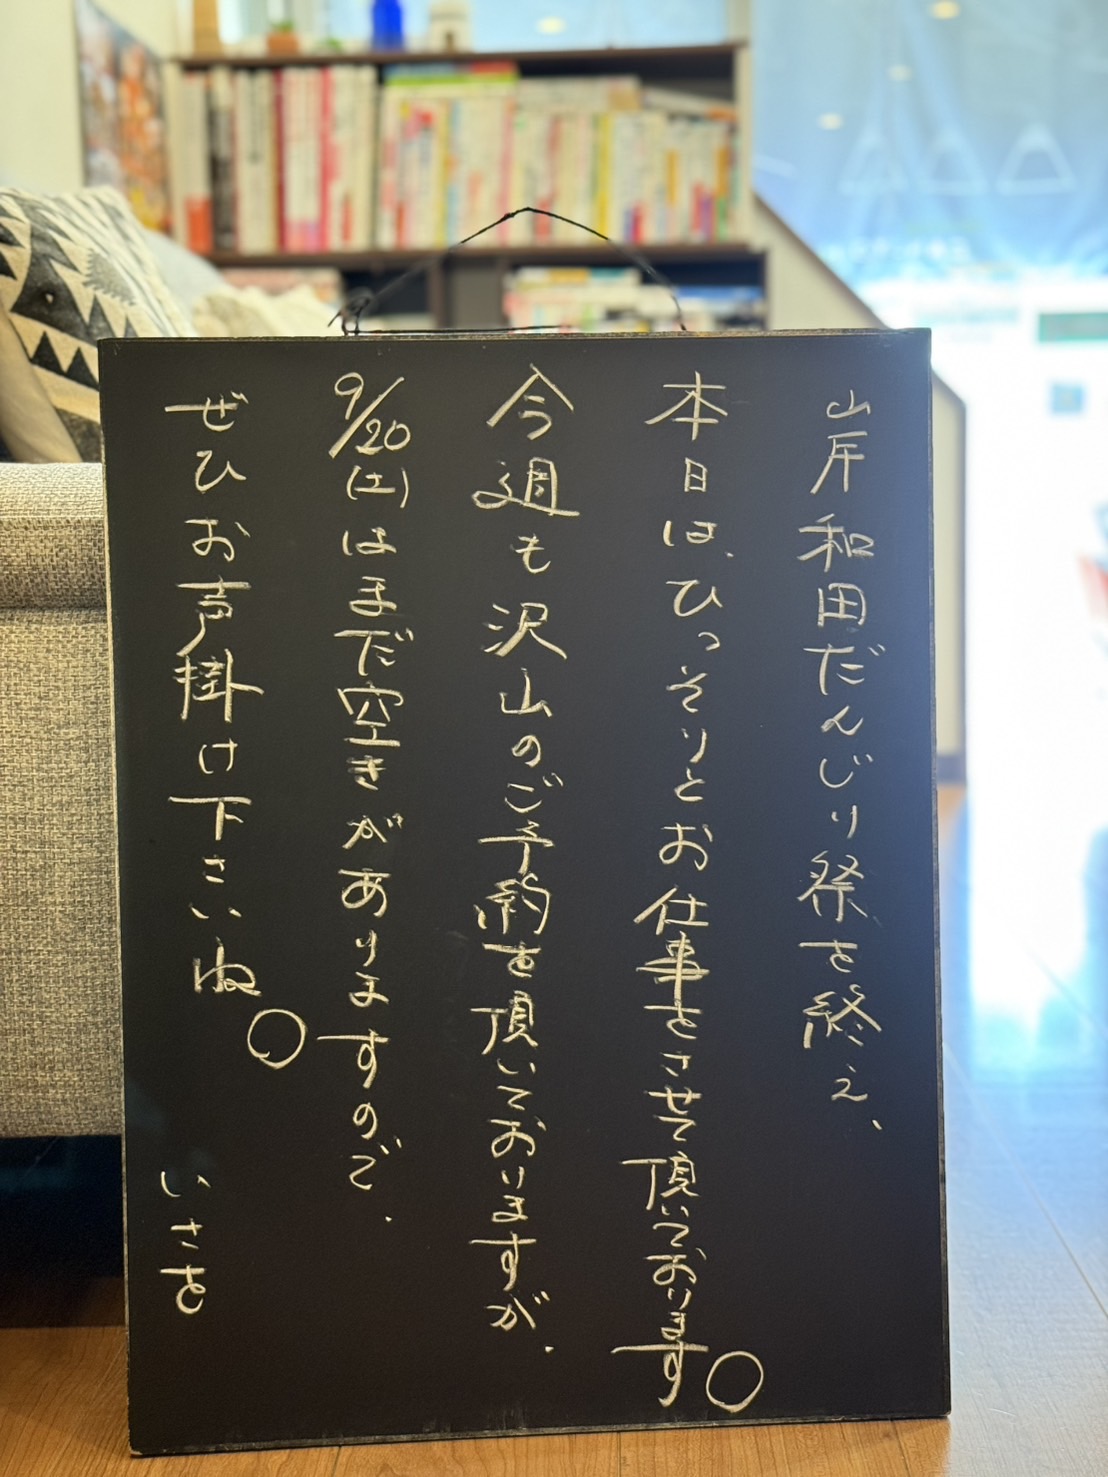 岸和田だんじり祭を終え、
本日は、ひっそりとお仕事をさせて頂いております。
今週も沢山のご予約を頂いておりますが、
9/20(土)はまだ空きがありますので、
ぜひお声掛け下さいね。
いさを